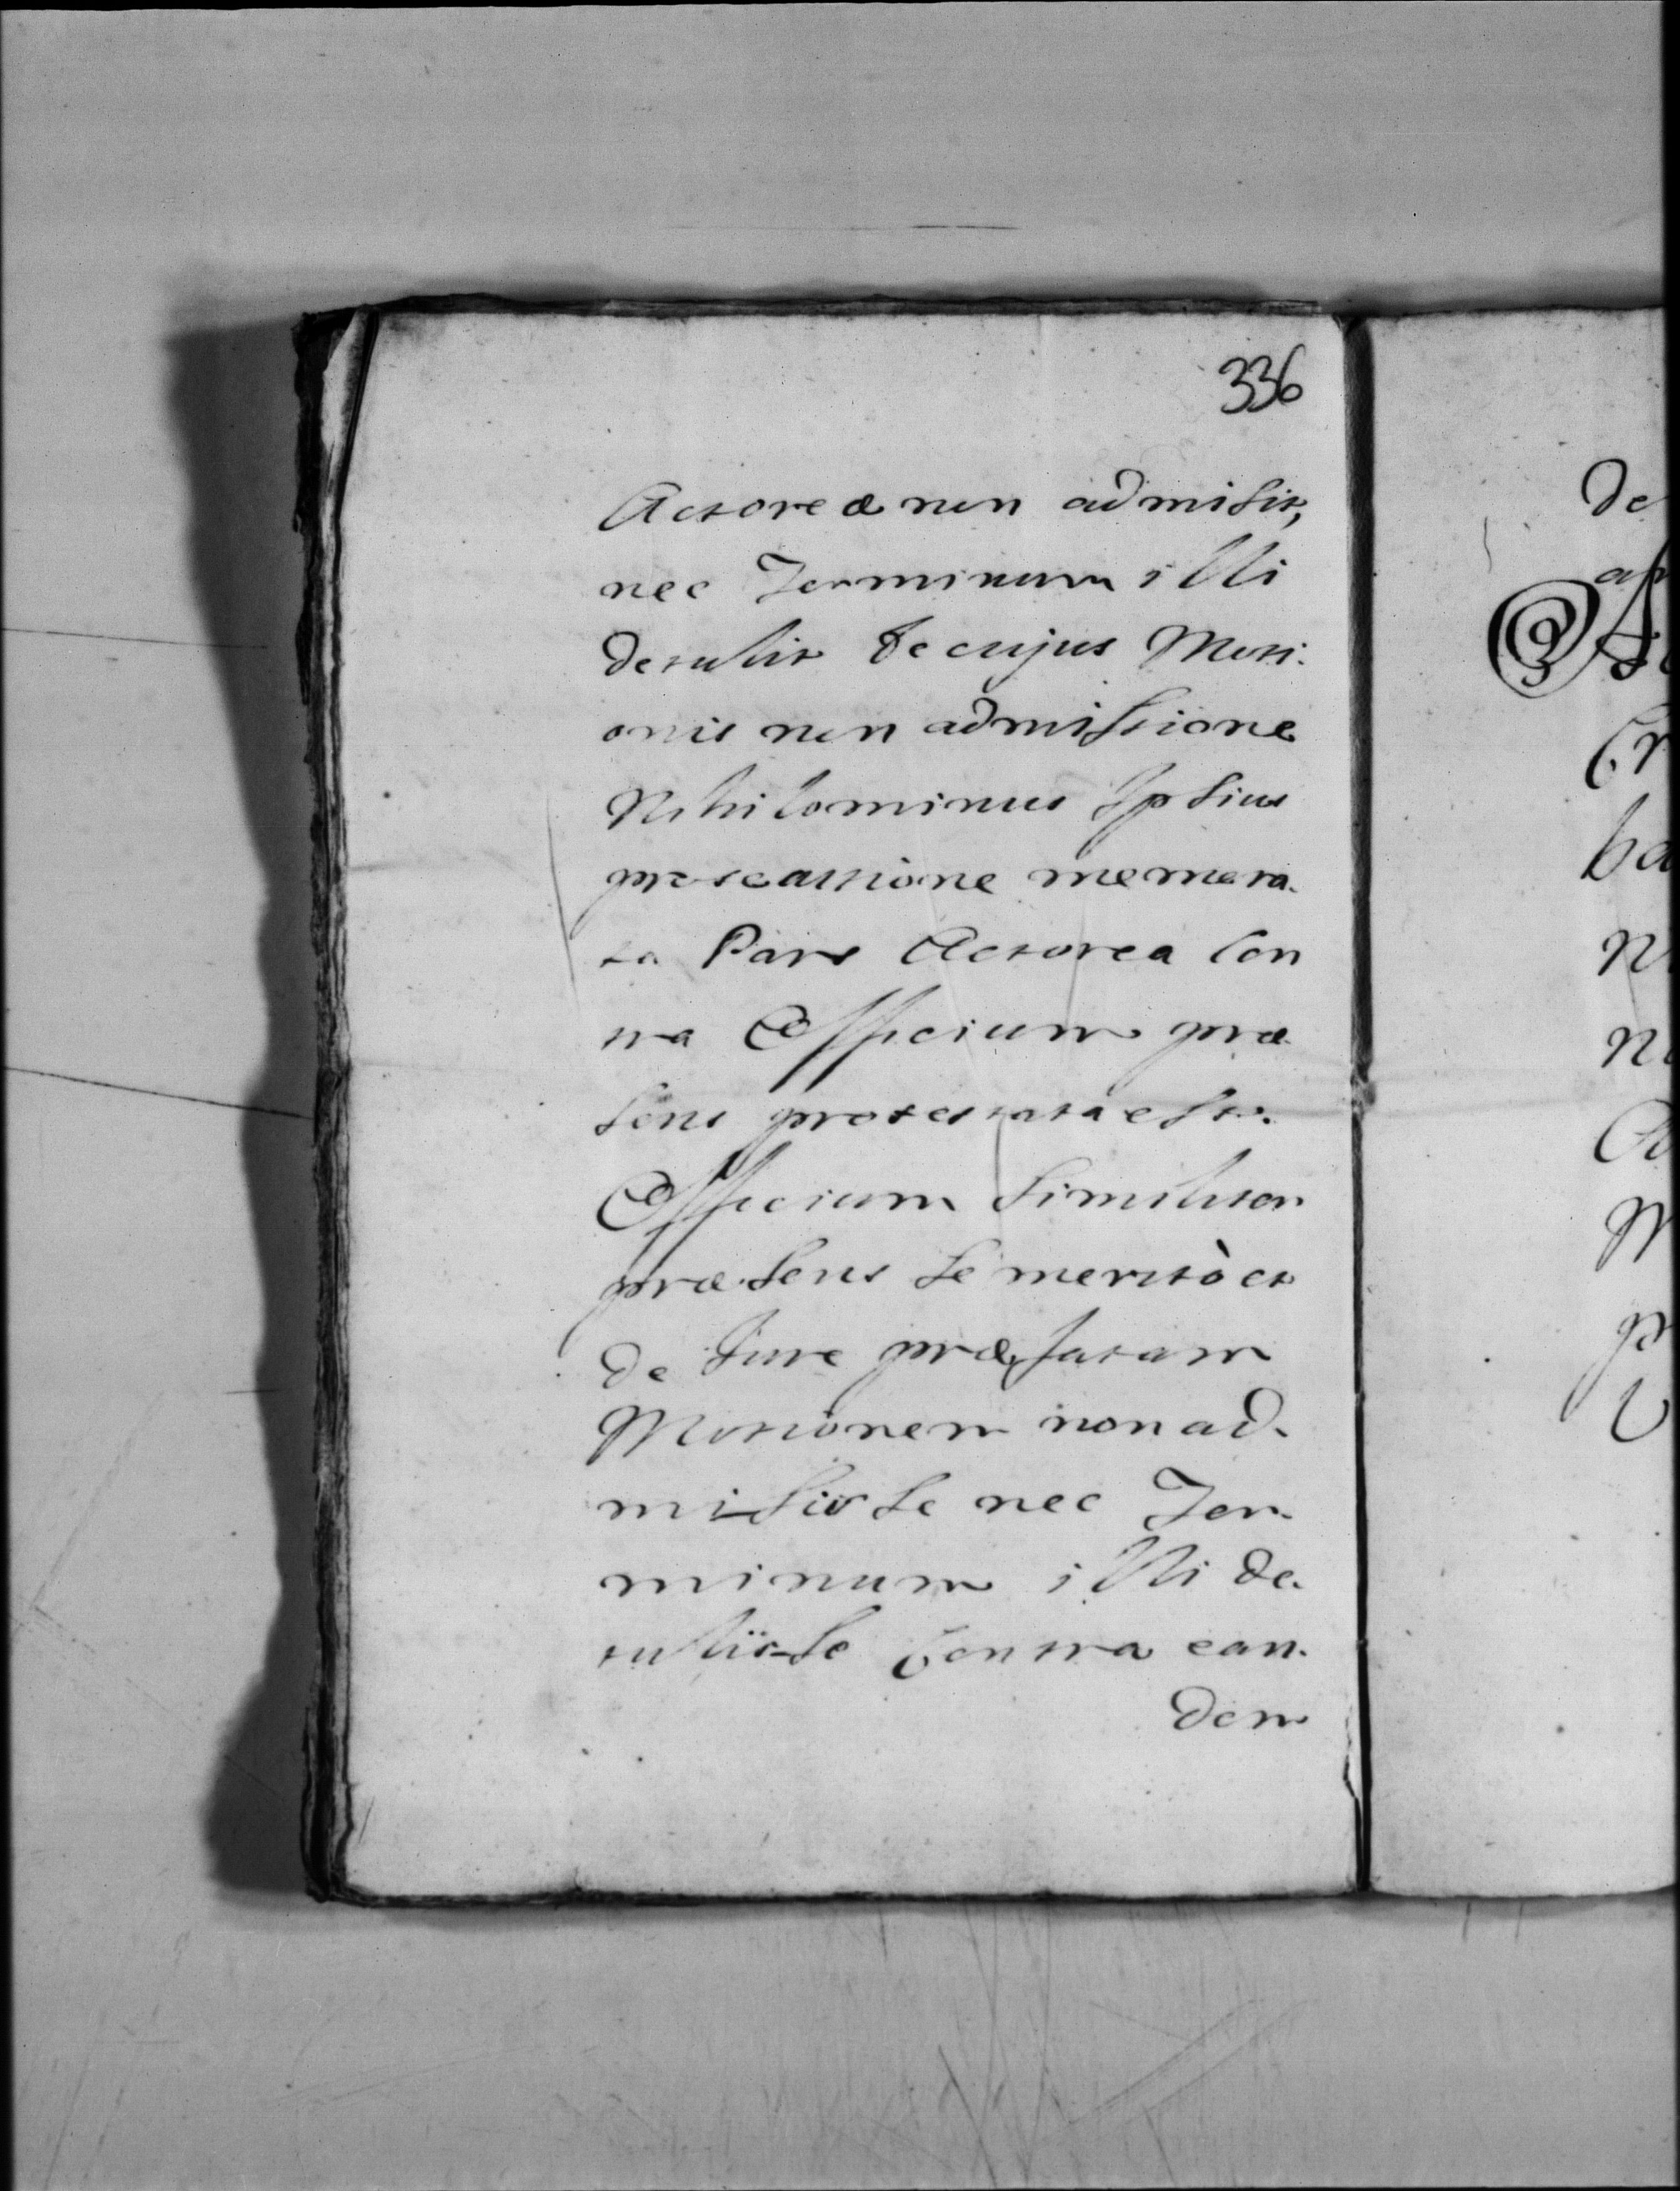 336
Actoreæ non admisit,
nec Terminum illi
detulit de cujus Moti-
onis non admissione
Nihilominus Ipsius
protestatione memora-
ta Pars Actorea Con
tra Officium præ
sens protestata est.
Officium similiter
præsens se meritò et
de Jure præfatam
Motionem non ad-
misisse nec Ter-
minum illi de-
tulisse Contra ean-
dem
de